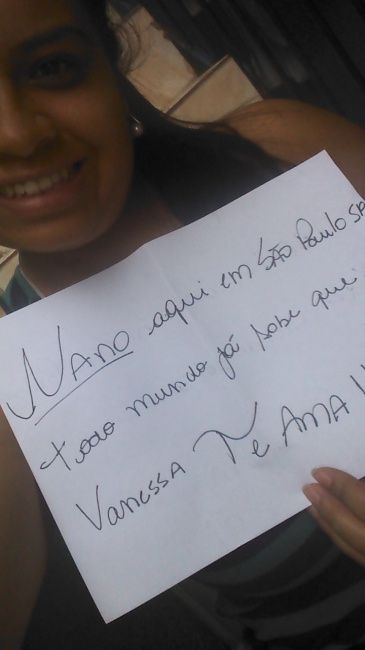 NANO aqui em São Paulo SP
todo mundo já sabe que
Vanessa Te AMA!!